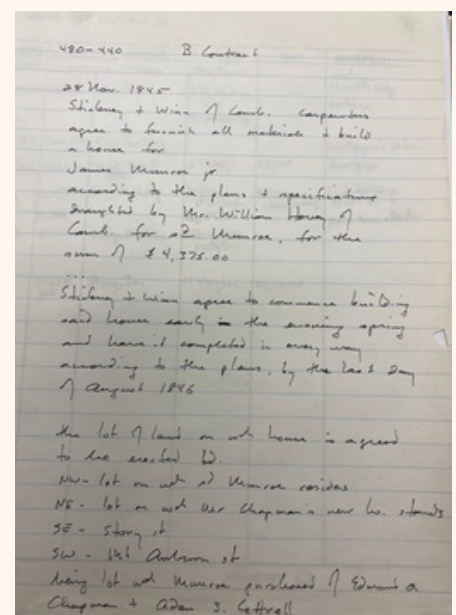 480-440 B Contract
28 Nov. 1845
Stickney + Winn of Camb. carpenters
agree to furnish all materials + build
a house for
James Munroe jr
according to the plans + specifications
draughted by Mr. William Hovey of
Camb. for sd Munroe, for the
sum of $4,375.00
...
Stickney + Winn agree to commence building
said house early in the ensuing spring
and have it completed in every way
according to the plans, by the last day
of August 1846
the lot of land on wh house is agreed
to be erected bd:
NW - lot on wh sd Munroe resides
NE - lot on wh Chapman's new ho. stands
SE - Story st
SW - Mt Auburn st
being lot wh Munroe purchased of Edmund A.
Chapman + Adam S. Cottrell